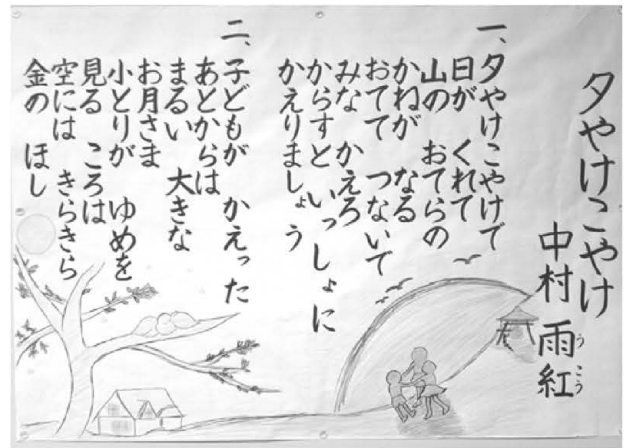 夕やけこやけ
中村 雨紅
うこう
一、夕やけこやけで
日が くれて
山の おてらの
かねが なる
おてて つないで
みな かえろ
からすと いっしょに
かえりましょう
二、子どもが かえった
あとからは
まるい 大きな
お月さま
小とりが ゆめを
見る ころは
空には きらきら
金の ほし